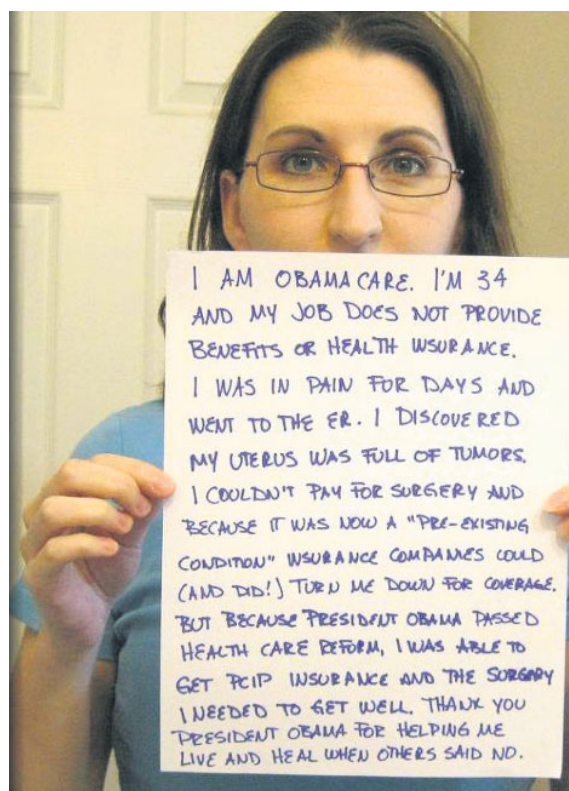 I AM OBAMACARE. I'M 34
AND MY JOB DOES NOT PROVIDE
BENEFITS OR HEALTH INSURANCE.
I WAS IN PAIN FOR DAYS AND
WENT TO THE ER. I DISCOVERED
MY UTERUS WAS FULL OF TUMORS.
I COULDN'T PAY FOR SURGERY AND
BECAUSE IT WAS NOW A "PRE-EXISTING
CONDITION" INSURANCE COMPANIES COULD
(AND DID!) TURN ME DOWN FOR COVERAGE.
BUT BECAUSE PRESIDENT OBAMA PASSED
HEALTH CARE REFORM, I WAS ABLE TO
GET PCIP INSURANCE AND THE SURGERY
I NEEDED TO GET WELL. THANK YOU
PRESIDENT OBAMA FOR HELPING ME
LIVE AND HEAL WHEN OTHERS SAID NO.